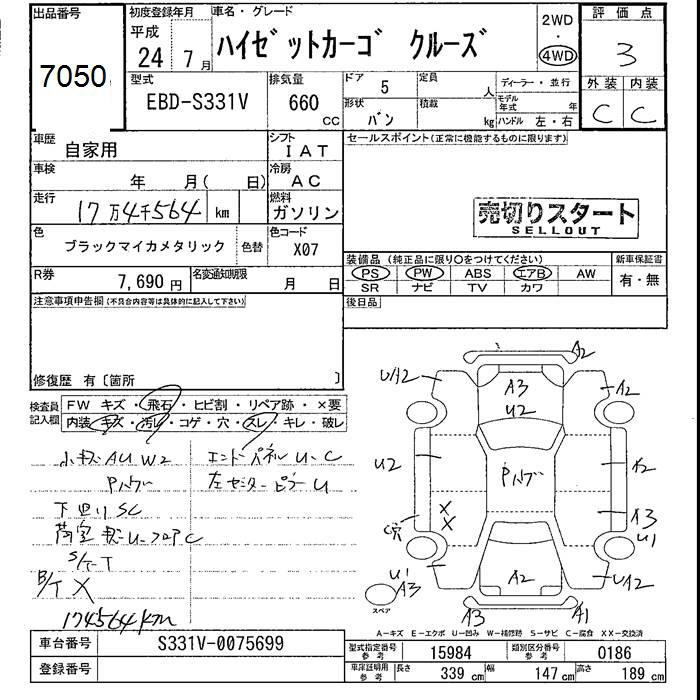 出品番号 初度登録年月 車名・グレード 2WD ・ 4WD 評価点
7050 平成 24年 7月 ハイゼットカーゴ クルーズ 3
型式 排気量 ドア 5 定員 人 ディーラー・並行 外装 内装
EBD-S331V 660 CC 形状 バン 積載 kg モデル年式 年 ハンドル 左・右 C C
車歴 自家用 シフト IAT セールスポイント(正常に機能するものに限ります)
車検 年 月( 日) 冷房 AC
走行 17万4千564 km 燃料 ガソリン 売切りスタート
SELLOUT
色 ブラックマイカメタリック 色替 色コード X07
装備品(純正品に限り○をつけてください) 新車保証書
PS PW ABS エアB AW 有・無
SR ナビ TV カワ
R券 7,690円 名変通知期限 月 日
注意事項申告欄(不具合内容等は具体的に記入して下さい) 後日品
修復歴 有〔箇所 〕
検査員記入欄 FW キズ・飛石・ヒビ割・リペア跡・×要
内装・キズ・汚レ・コゲ・穴・スレ・キレ・破レ
小キズ AU W2 エンドパネル U-C
Pハゲ 左センターピラー U
下回り SC
S/T-T
B/T X
174564km
A2
U/A2 A3 U2 A2
U2 Pハゲ A2
X X A3
C穴 U1
U1 A3 A2 U/A2
スペア A3 A1
A−キズ E−エクボ U−凹み W−補修跡 S−サビ C−腐食 XX−交換済
車台番号 S331V-0075699 型式指定番号 参考 15984 類別区分番号 参考 0186
登録番号 車庫証明用 参考 長さ 339 cm 幅 147 cm 高さ 189 cm